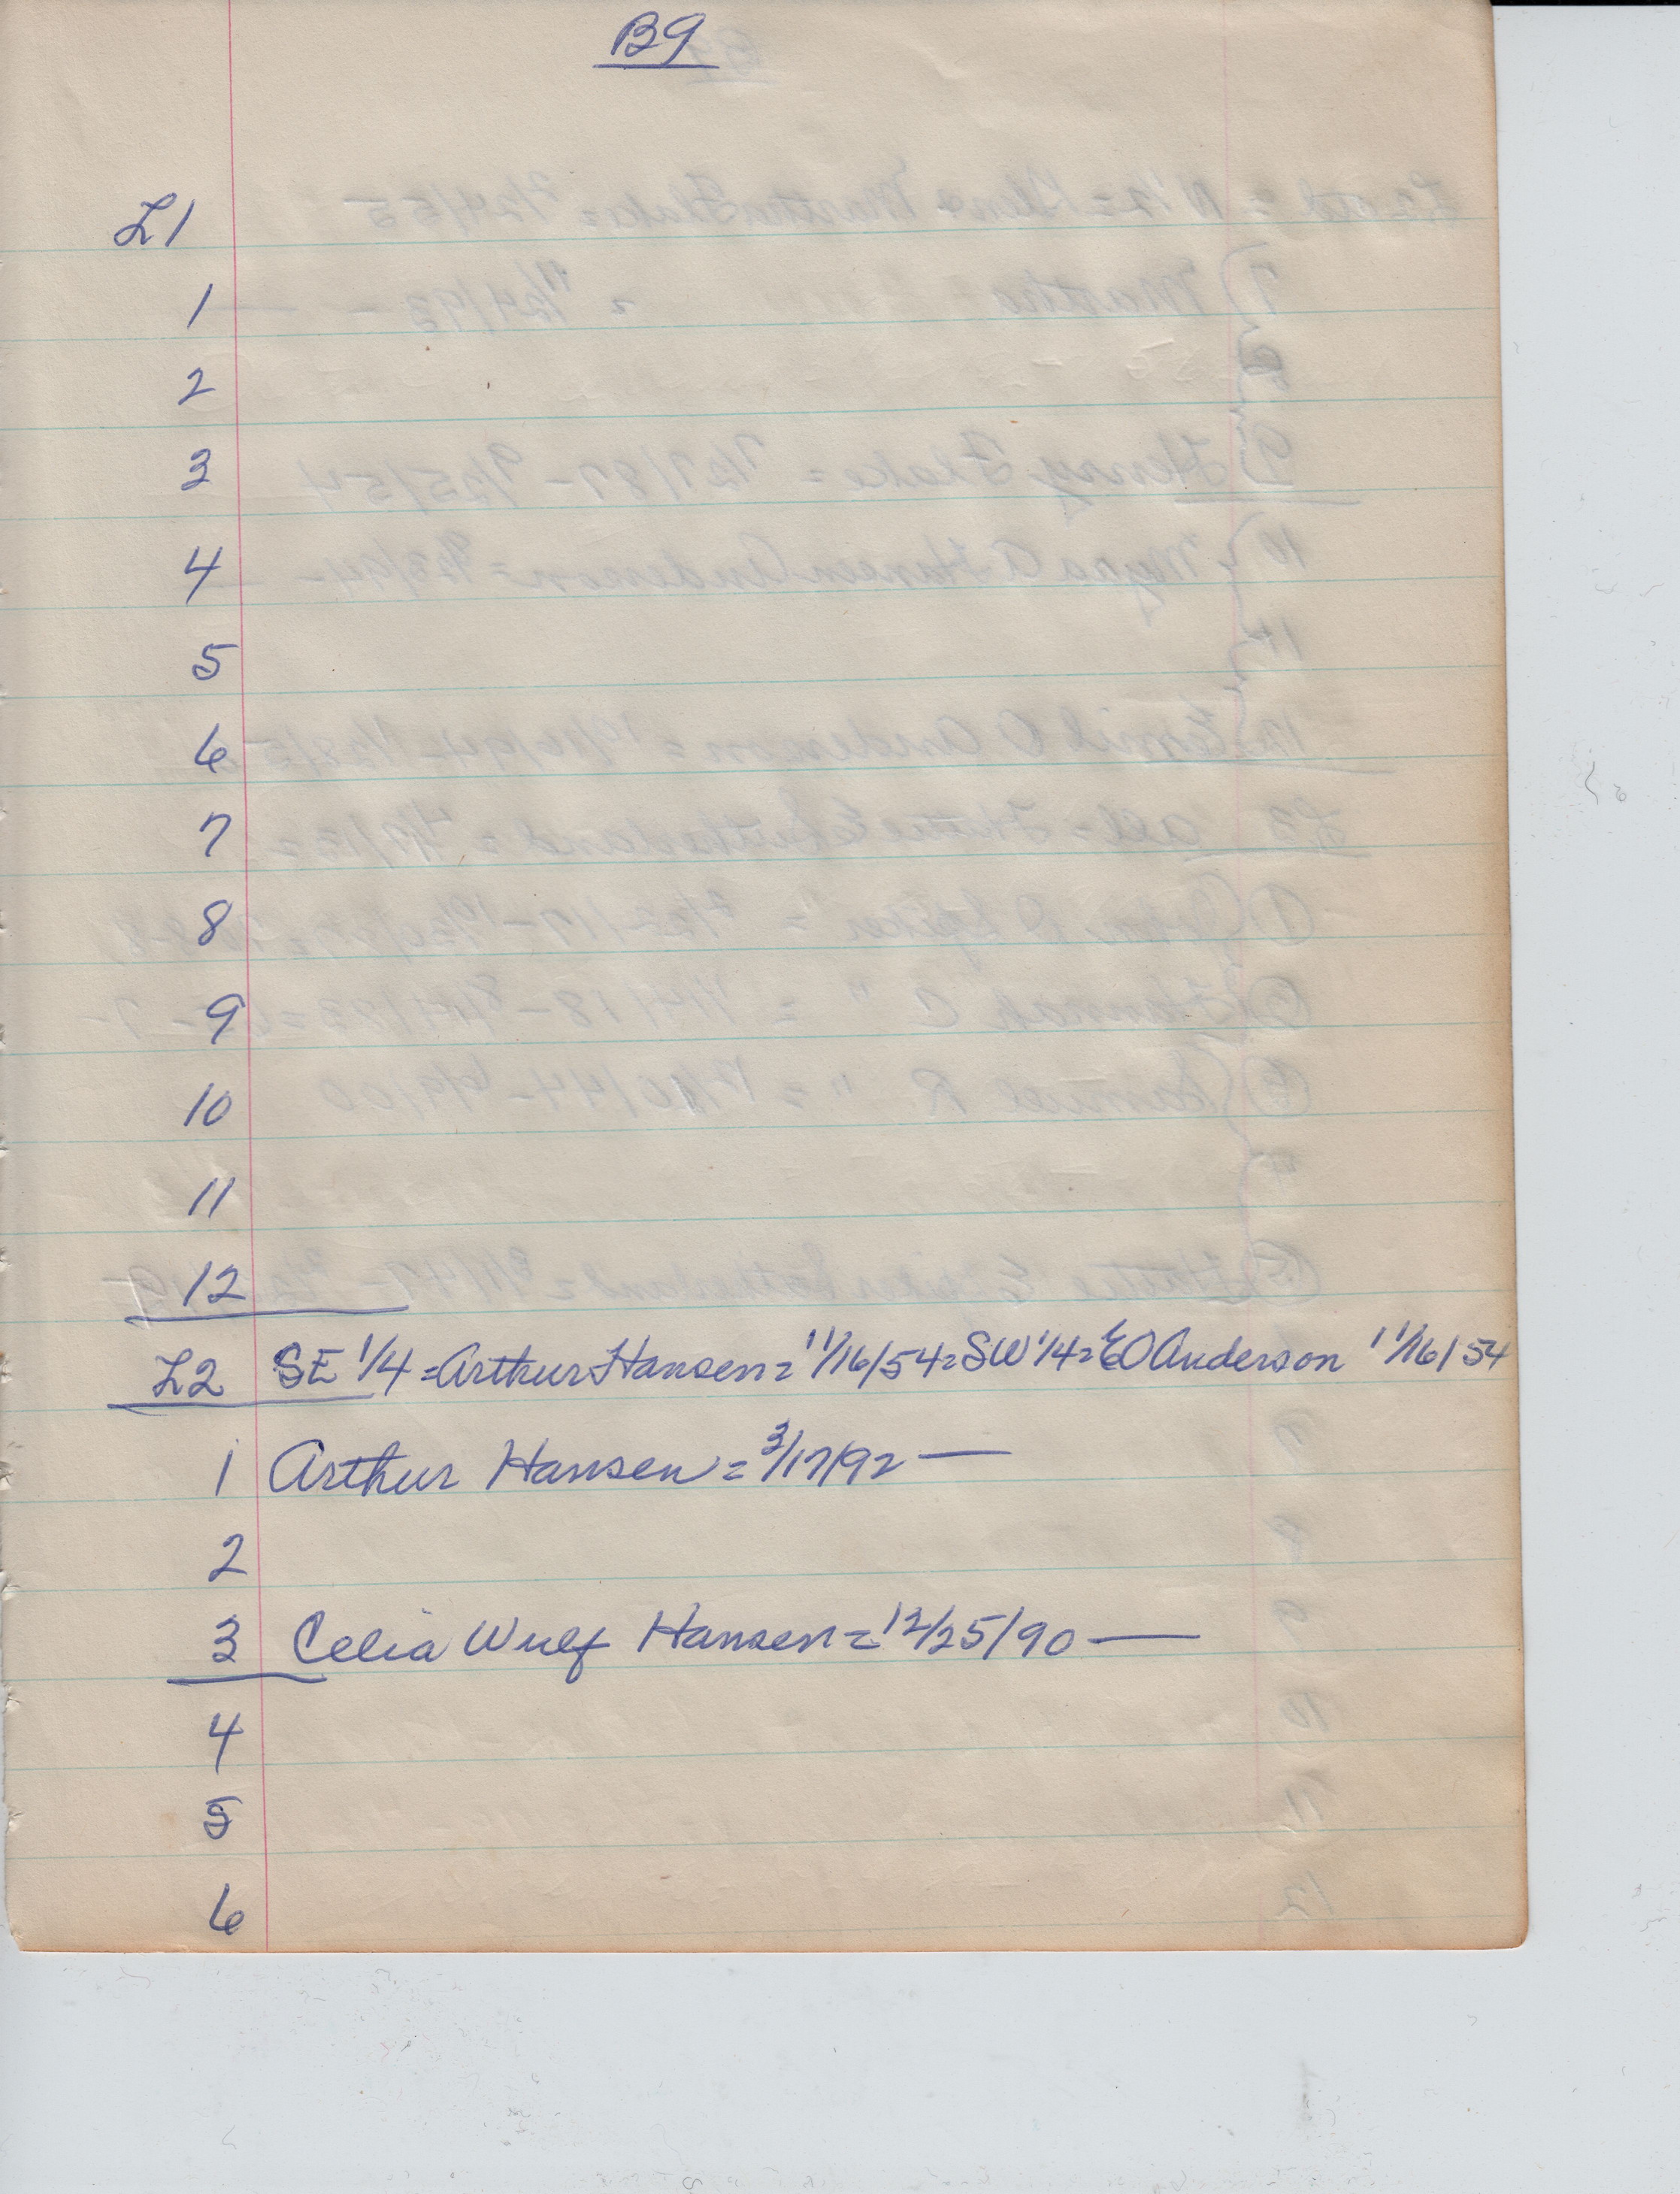 B9
L1
1
2
3
4
5
6
7
8
9
10
11
12
L2 SE 1/4 = Arthur Hansen = 11/16/54 = SW 1/4 = EO Anderson 11/16/54
1 Arthur Hansen = 3/17/92 —
2
3 Celia Wulf Hansen = 12/25/90 —
4
5
6